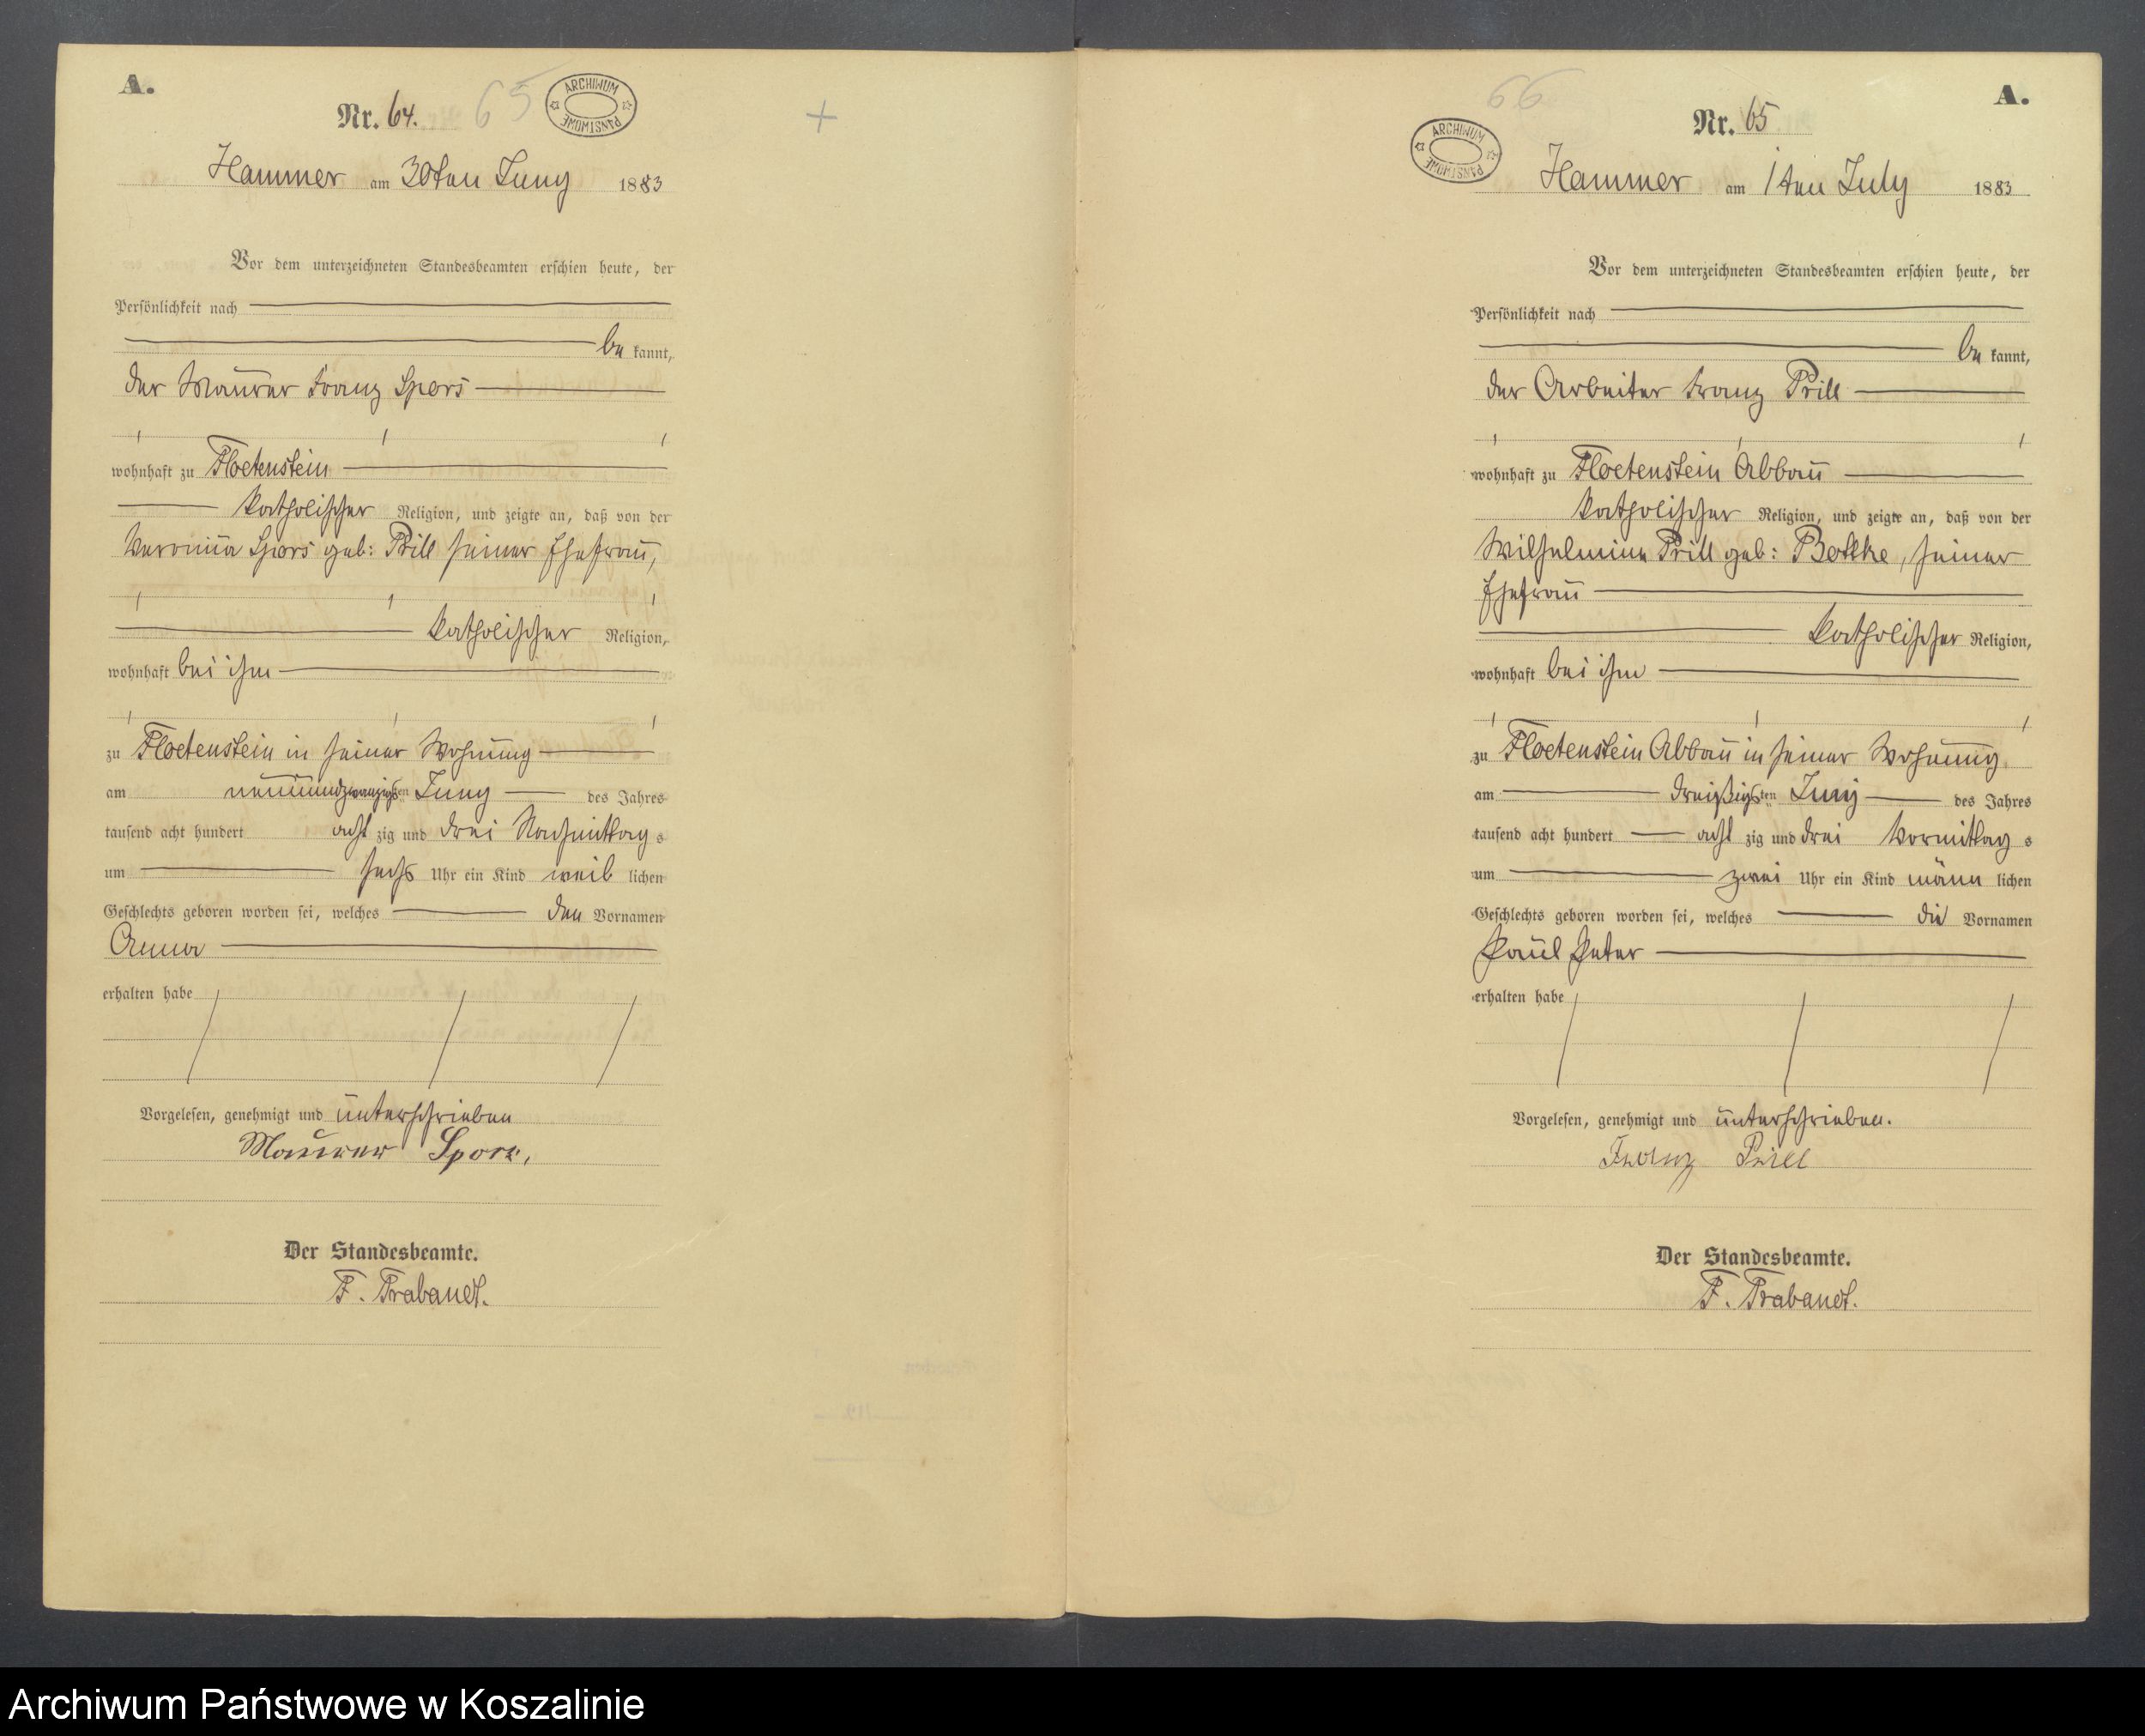 A.
Nr. 64.
65
ARCHIWUM PAŃSTWOWE
+
Hammer am 30ten Juny 1883
Vor dem unterzeichneten Standesbeamten erschien heute, der
Persönlichkeit nach
be kannt,
der Maurer Franz Spors
wohnhaft zu Floetenstein
katholischer Religion, und zeigte an, daß von der
Veronica Spors geb: Prill seiner Ehefrau,
katholischer Religion,
wohnhaft bei ihm
zu Floetenstein in seiner Wohnung
am neunundzwanzigsten Juny des Jahres
tausend acht hundert acht zig und drei Nachmittag s
um sechs Uhr ein Kind weib lichen
Geschlechts geboren worden sei, welches den Vornamen
Anna
erhalten habe
Vorgelesen, genehmigt und unterschrieben
Maurer Spors.
Der Standesbeamte.
F. Trabandt.
A.
66
Nr. 65
ARCHIWUM PAŃSTWOWE
Hammer am 1ten July 1883
Vor dem unterzeichneten Standesbeamten erschien heute, der
Persönlichkeit nach
be kannt,
der Arbeiter Franz Prill
wohnhaft zu Floetenstein Abbau
katholischer Religion, und zeigte an, daß von der
Wilhelmine Prill geb: Bottke, seiner
Ehefrau
katholischer Religion,
wohnhaft bei ihm
zu Floetenstein Abbau in seiner Wohnung
am dreißigsten Juny des Jahres
tausend acht hundert acht zig und drei Vormittag s
um zwei Uhr ein Kind männ lichen
Geschlechts geboren worden sei, welches die Vornamen
Paul Peter
erhalten habe
Vorgelesen, genehmigt und unterschrieben.
Franz Prill
Der Standesbeamte.
F. Trabandt.
Archiwum Państwowe w Koszalinie